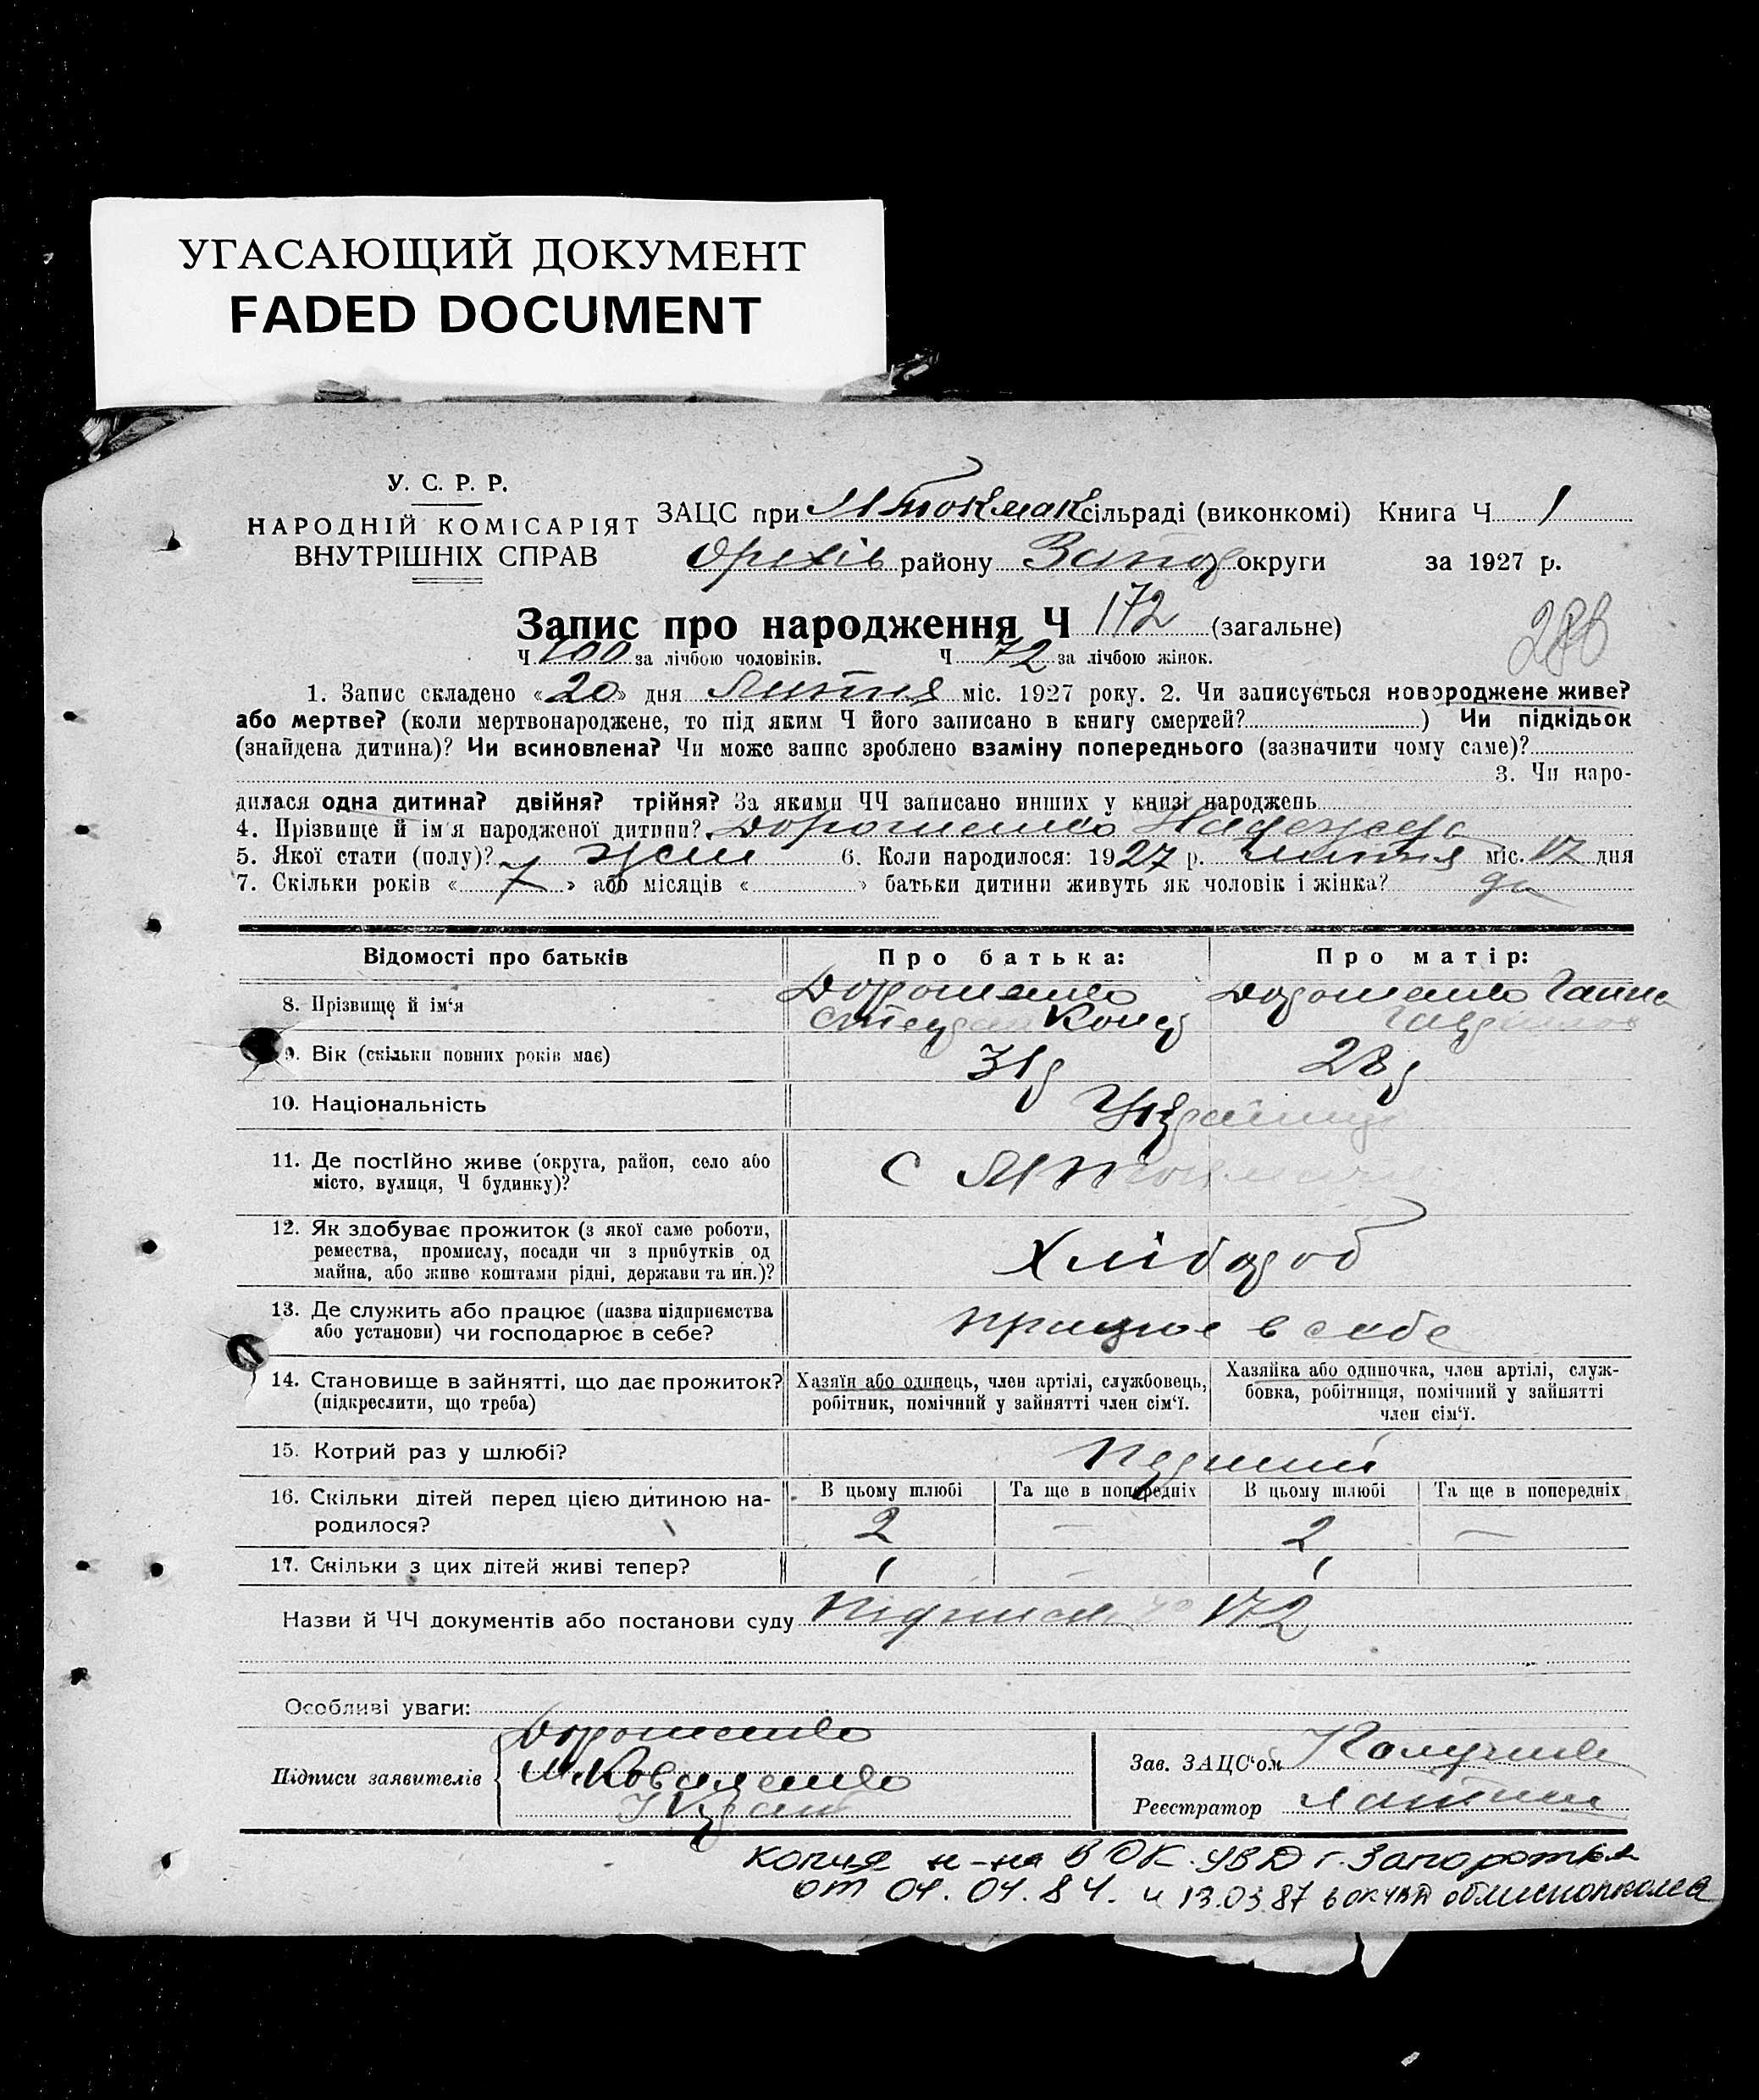 УГАСАЮЩИЙ ДОКУМЕНТ
FADED DOCUMENT
У. С. Р. Р.
НАРОДНІЙ КОМІСАРІЯТ
ВНУТРІШНІХ СПРАВ
ЗАЦС при М Токмак сільраді (виконкомі) Книга Ч 1
Оріхів району Запор округи за 1927 р.
Запис про народження Ч 172 (загальне)
288
Ч 100 за лічбою чоловіків. Ч 72 за лічбою жінок.
1. Запис складено «20» дня Липня міс. 1927 року. 2. Чи записується новороджене живе?
або мертве? (коли мертвонароджене, то під яким Ч його записано в книгу смертей? ) Чи підкідьок
(знайдена дитина)? Чи всиновлена? Чи може запис зроблено взаміну попереднього (зазначити чому саме)?
3. Чи наро-
дилася одна дитина? двійня? трійня? За якими ЧЧ записано инших у книзі народжень
4. Прізвище й ім'я народженої дитини? Дорошенко Надежда
5. Якої стати (полу)? жін 6. Коли народилося: 1927 р. липня міс. 17 дня
7. Скільки років « 7 » або місяців « » батьки дитини живуть як чоловік і жінка? да
Відомості про батьків Про батька: Про матір:
8. Прізвище й ім'я Дорошенко Дорошенко Ганна
Степан Конд
9. Вік (скільки повних років має) 31 р 28 р
10. Національність Українці
11. Де постійно живе (округа, район, село або
місто, вулиця, Ч будинку)? С М Токмачка
12. Як здобуває прожиток (з якої саме роботи,
ремества, промислу, посади чи з прибутків од
майна, або живе коштами рідні, держави та ин.)? Хлібороб
13. Де служить або працює (назва підприємства
або установи) чи господарює в себе? працює в себе
14. Становище в зайнятті, що дає прожиток?
(підкреслити, що треба)
Хазяїн або одинець, член артілі, службовець,
робітник, помічний у зайнятті член сім'ї.
Хазяйка або одиночка, член артілі, служ-
бовка, робітниця, помічний у зайнятті
член сім'ї.
15. Котрий раз у шлюбі? Перший
16. Скільки дітей перед цією дитиною на-
родилося?
В цьому шлюбі Та ще в попередніх В цьому шлюбі Та ще в попередніх
2 — 2 —
17. Скільки з цих дітей живі тепер? 1 1
Назви й ЧЧ документів або постанови суду 172
Особливі уваги:
Підписи заявителів Дорошенко
Коваленко
Зав. ЗАЦС'ом
Реєстратор
копия н-на в ОК. УВД г. Запорожья
от 04.04.84. и 13.03.87 в ОК УВД облисполкома